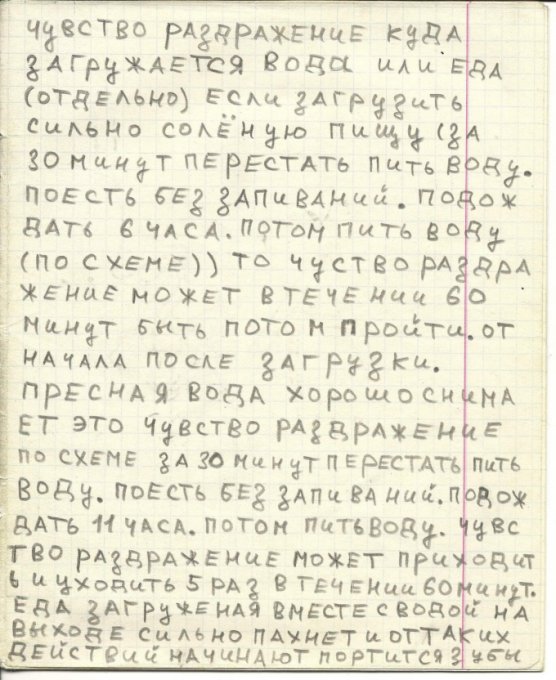 ЧУВСТВО РАЗДРАЖЕНИЕ КУДА
ЗАГРУЖАЕТСЯ ВОДА ИЛИ ЕДА
(ОТДЕЛЬНО) ЕСЛИ ЗАГРУЗИТЬ
СИЛЬНО СОЛЁНУЮ ПИЩУ (ЗА
30 МИНУТ ПЕРЕСТАТЬ ПИТЬ ВОДУ.
ПОЕСТЬ БЕЗ ЗАПИВАНИЙ. ПОДОЖ
ДАТЬ 6 ЧАСА. ПОТОМ ПИТЬ ВОДУ
(ПО СХЕМЕ)) ТО ЧУСТВО РАЗДРА
ЖЕНИЕ МОЖЕТ В ТЕЧЕНИИ 60
МИНУТ БЫТЬ ПОТОМ ПРОЙТИ. ОТ
НАЧАЛА ПОСЛЕ ЗАГРУЗКИ.
ПРЕСНАЯ ВОДА ХОРОШО СНИМА
ЕТ ЭТО ЧУВСТВО РАЗДРАЖЕНИЕ
ПО СХЕМЕ ЗА 30 МИНУТ ПЕРЕСТАТЬ ПИТЬ
ВОДУ. ПОЕСТЬ БЕЗ ЗАПИВАНИЙ. ПОДОЖ
ДАТЬ 11 ЧАСА. ПОТОМ ПИТЬ ВОДУ. ЧУВС
ТВО РАЗДРАЖЕНИЕ МОЖЕТ ПРИХОДИТ
Ь И УХОДИТЬ 5 РАЗ В ТЕЧЕНИИ 60 МИНУТ.
ЕДА ЗАГРУЖЕНАЯ ВМЕСТЕ С ВОДОЙ НА
ВЫХОДЕ СИЛЬНО ПАХНЕТ И ОТ ТАКИХ
ДЕЙСТВИЙ НАЧИНАЮТ ПОРТИТСЯ ЗУБЫ